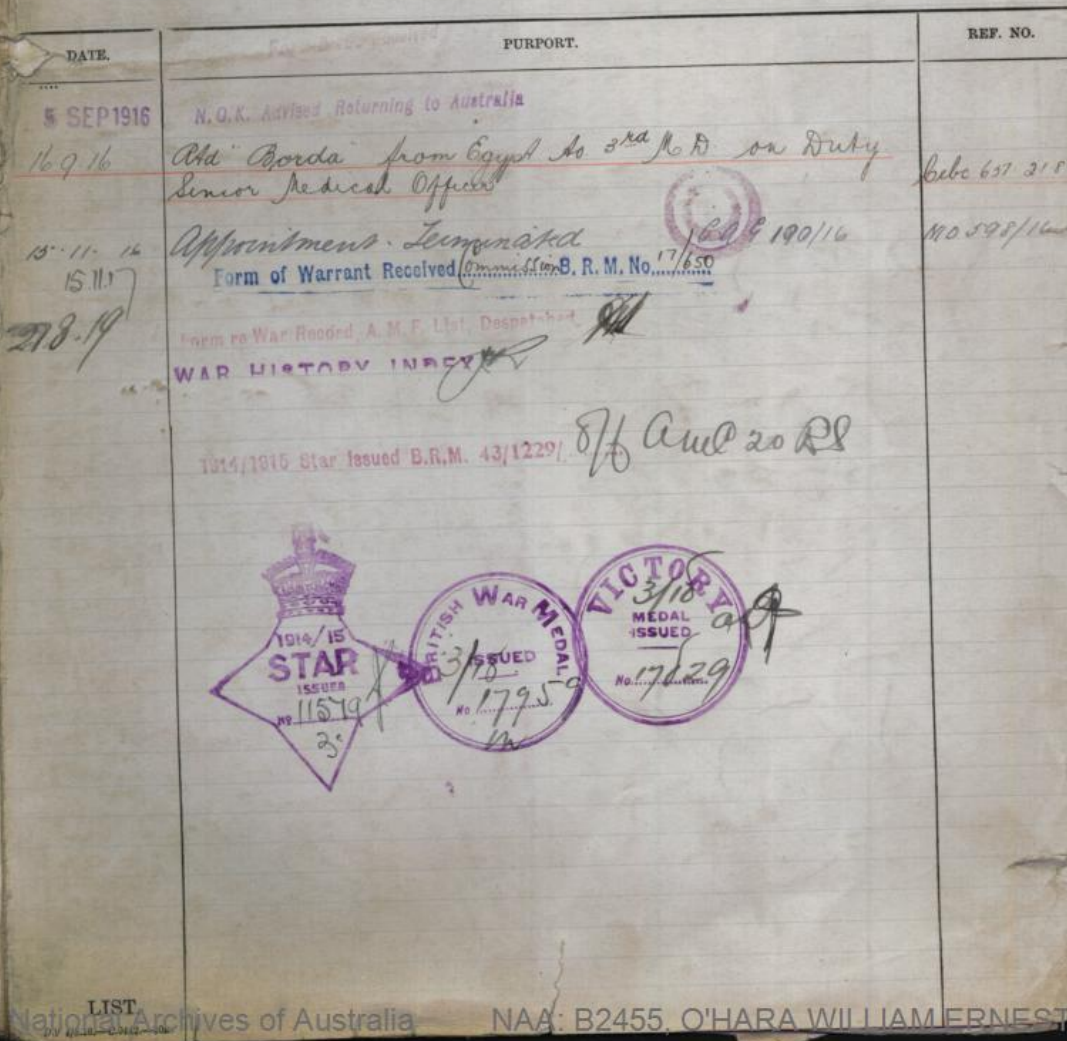 DATE. PURPORT. REF. NO.
5 SEP 1916 N.O.K. Advised Returning to Australia
16 9 16 Rtd "Borda" from Egypt to 3rd M D. on Duty
Senior Medical Officer
15-11-16 Appointment Terminated C A G 190/16 MO 598/16
15.11.17 Form of Warrant Received Commission B. R. M. No. 17/650
27.8.19 Form re War Record, A. M. F. List, Despatched
WAR HISTORY INDEX
1914/1915 Star Issued B.R.M. 43/1229/
1914/15
STAR
ISSUED
No 11579
BRITISH WAR MEDAL
3/18 ISSUED
No 17959
VICTORY
3/18
MEDAL
ISSUED
No. 17129
LIST
National Archives of Australia NAA: B2455, O'HARA WILLIAM ERNEST